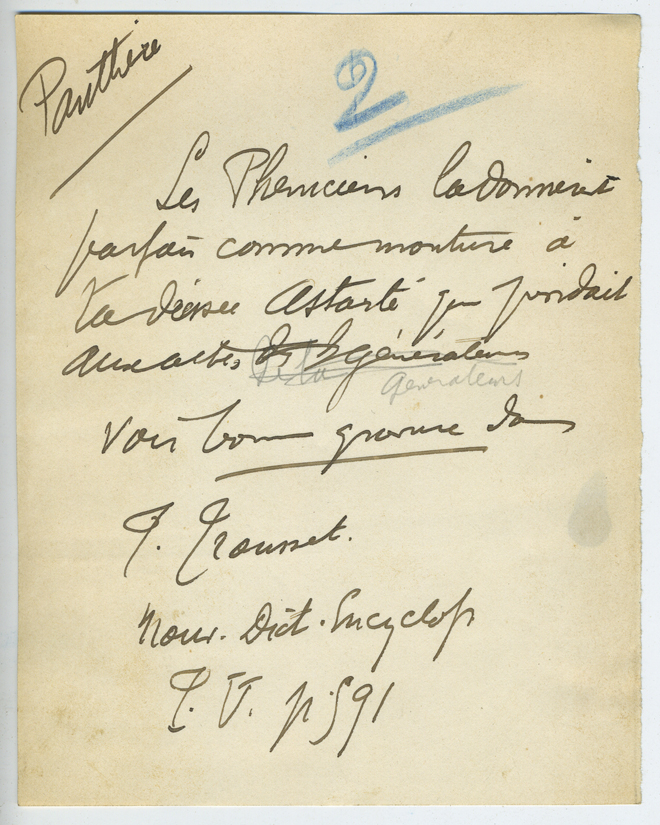 Panthère
2
Les Pheniciens la donnèrent
parfois comme monture à
la déesse Astarté qui présidait
aux actes de la générateurs
générateurs
Voir bonne gravure dans
J. Trousset.
Nouv. Dict. Encyclop
T. V. p. 591